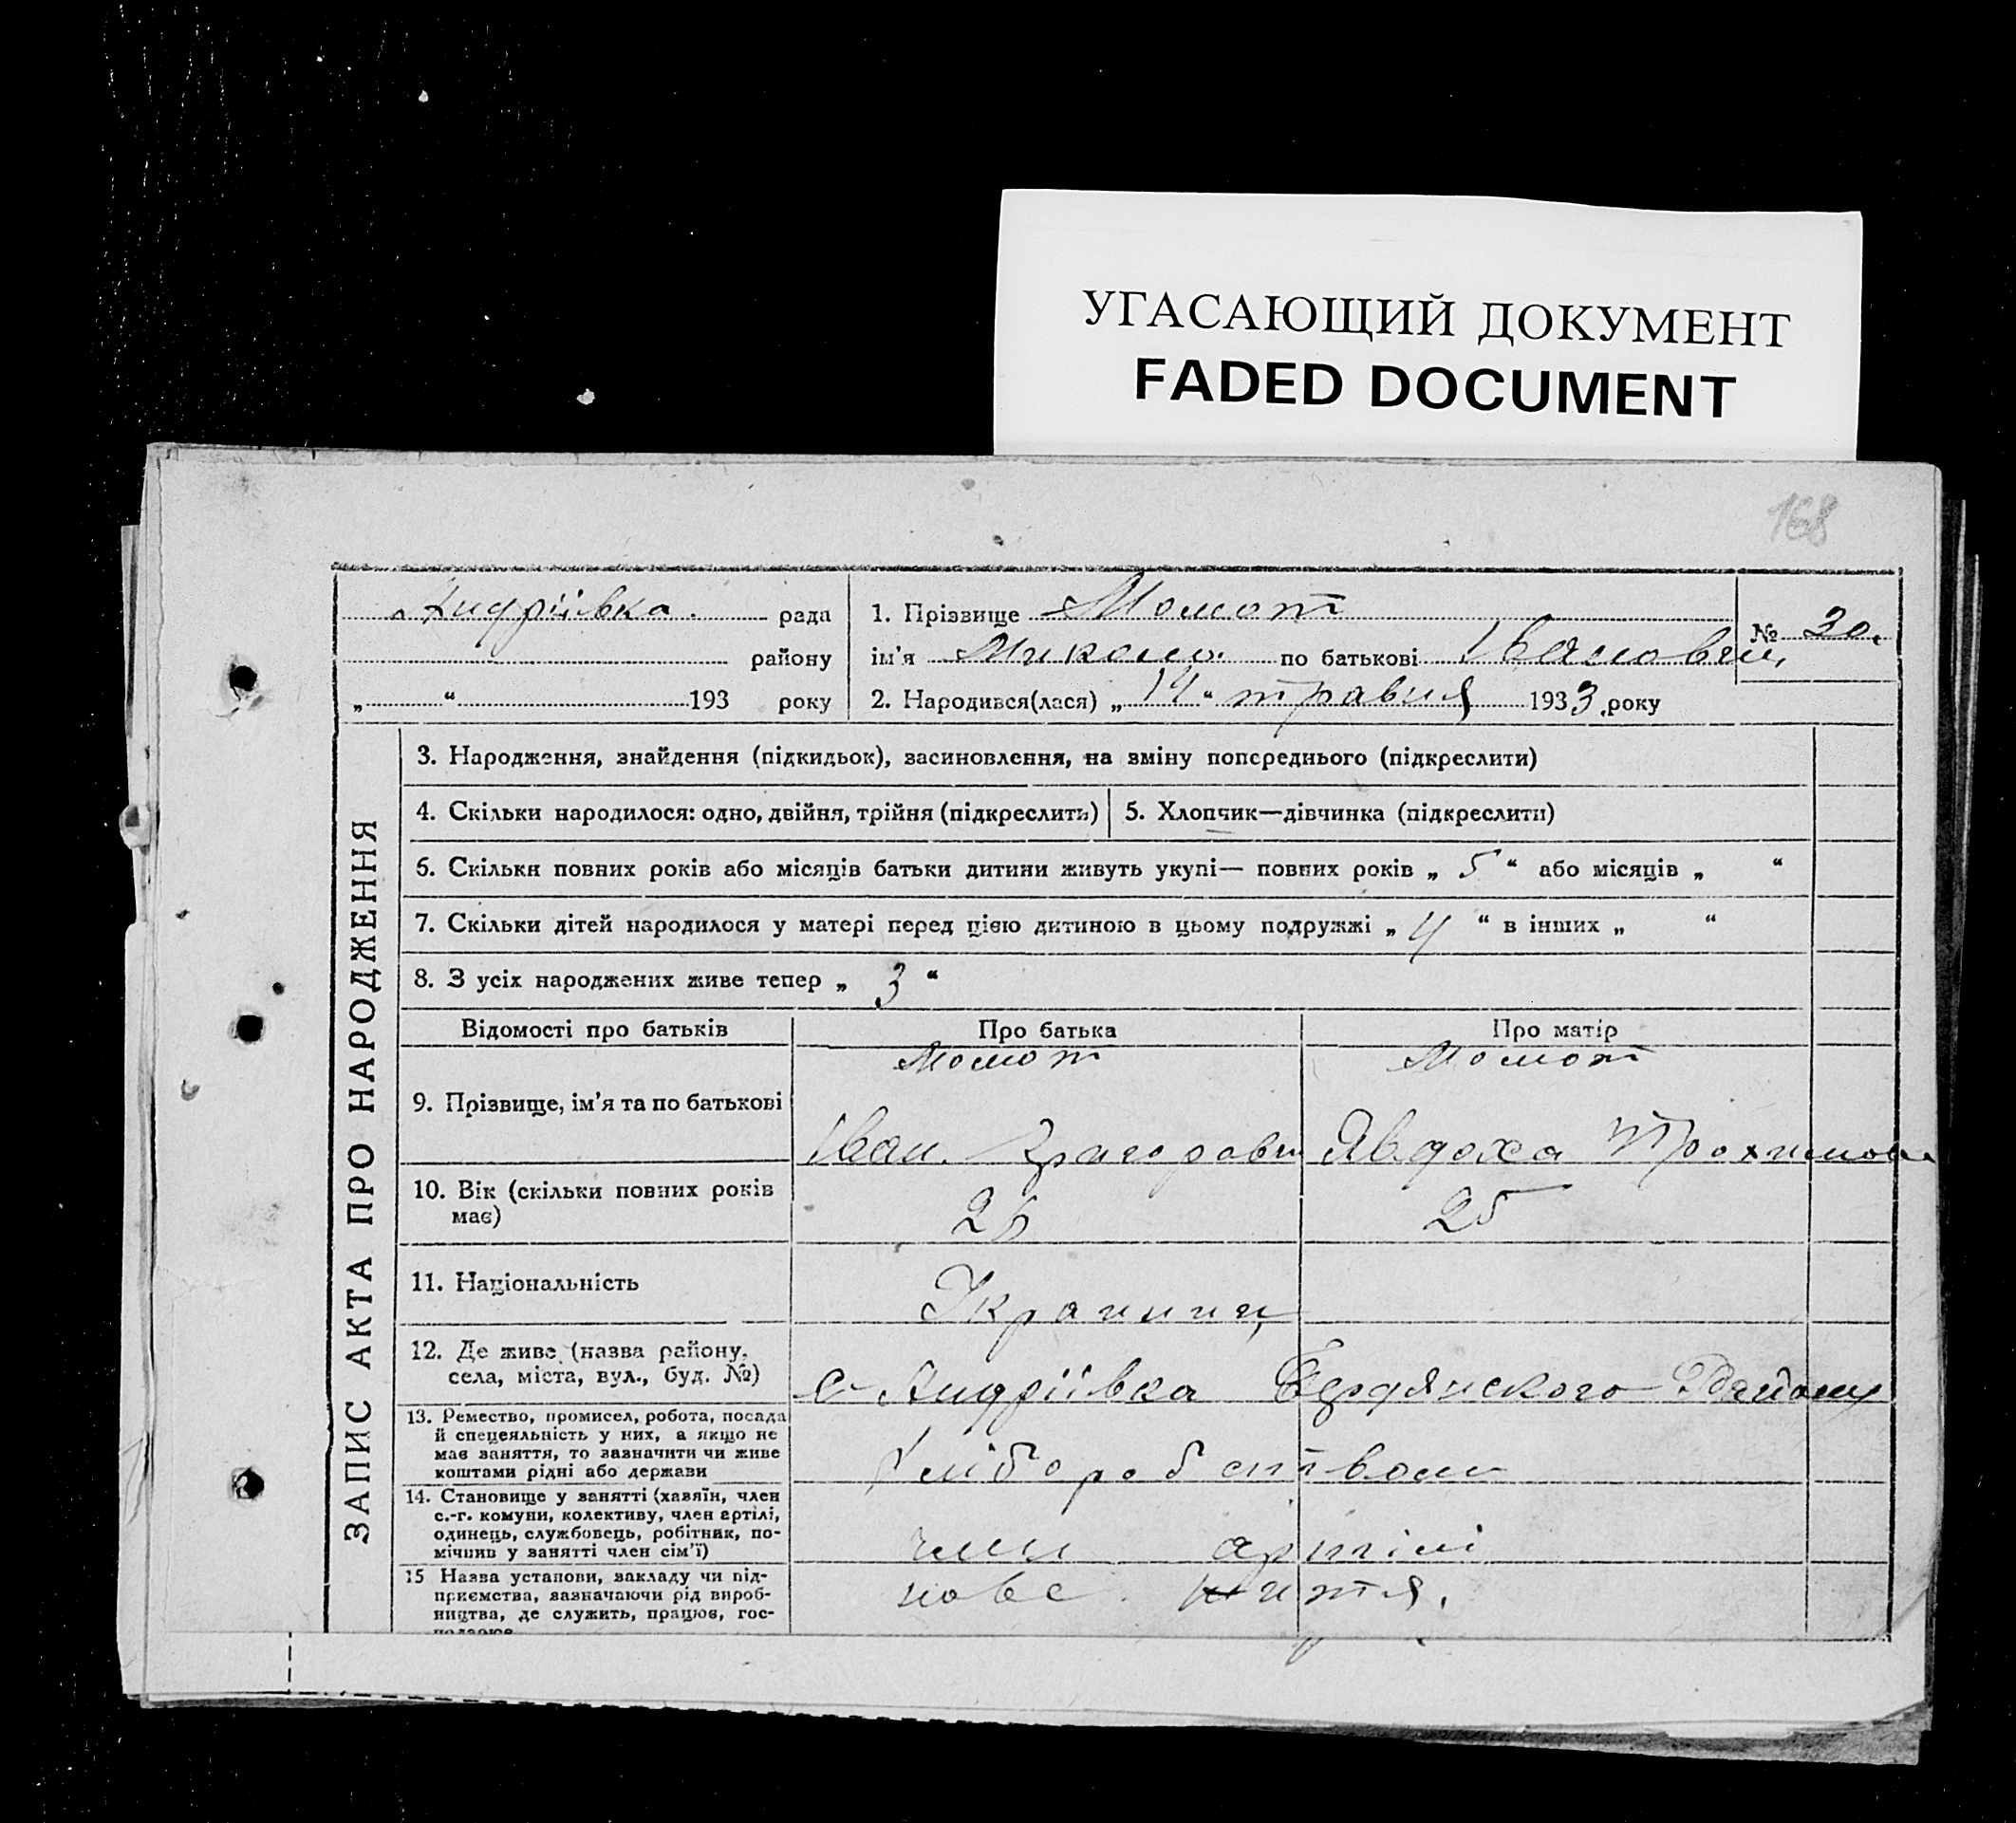 УГАСАЮЩИЙ ДОКУМЕНТ
FADED DOCUMENT
168
Андріївка. рада
району
„ “ 193 року
1. Прізвище Момот
ім'я Микола по батькові Іванович
2. Народився(лася) „ 14 “ травня 1933 року
№ 30.
ЗАПИС АКТА ПРО НАРОДЖЕННЯ
3. Народження, знайдення (підкидьок), засиновлення, на зміну попереднього (підкреслити)
4. Скільки народилося: одно, двійня, трійня (підкреслить) 5. Хлопчик—дівчинка (підкреслити)
6. Скільки повних років або місяців батьки дитини живуть укупі— повних років „ 5 “ або місяців „ “
7. Скільки дітей народилося у матері перед цією дитиною в цьому подружжі „ 4 “ в інших „ “
8. З усіх народжених живе тепер „ 3 “
Відомості про батьків Про батька Про матір
Момот Момот
9. Прізвище, ім'я та по батькові
Іван Явдоха Трохимов
10. Вік (скільки повних років
має)
26 25
11. Національність
Украинці
12. Де живе (назва району,
села, міста, вул., буд. №)
с Андріївка Бердянского Району
13. Ремество, промисел, робота, посада
й спецеяльність у них, а якщо не
має заняття, то зазначити чи живе
коштами рідні або держави
Хліборобством
14. Становище у занятті (хазяїн, член
с.-г. комуни, колективу, член артілі,
одинець, службовець, робітник, по-
мічнив у занятті член сім'ї)
член артілі
15 Назва установи, закладу чи під-
приємства, зазначаючи рід вироб-
ництва, де служить, працює, гос-
подарює
нове життя.